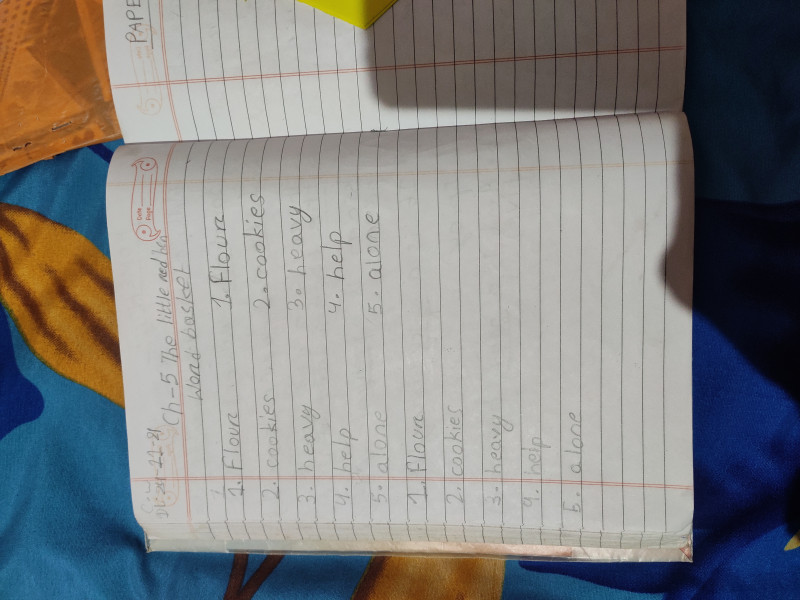 Ch-5 The little red hen
Word basket
1. Flour 1. Flour
2. cookies 2. cookies
3. heavy 3. heavy
4. help 4. help
5. alone 5. alone
1. Flour
2. cookies
3. heavy
4. help
5. alone
PAPE